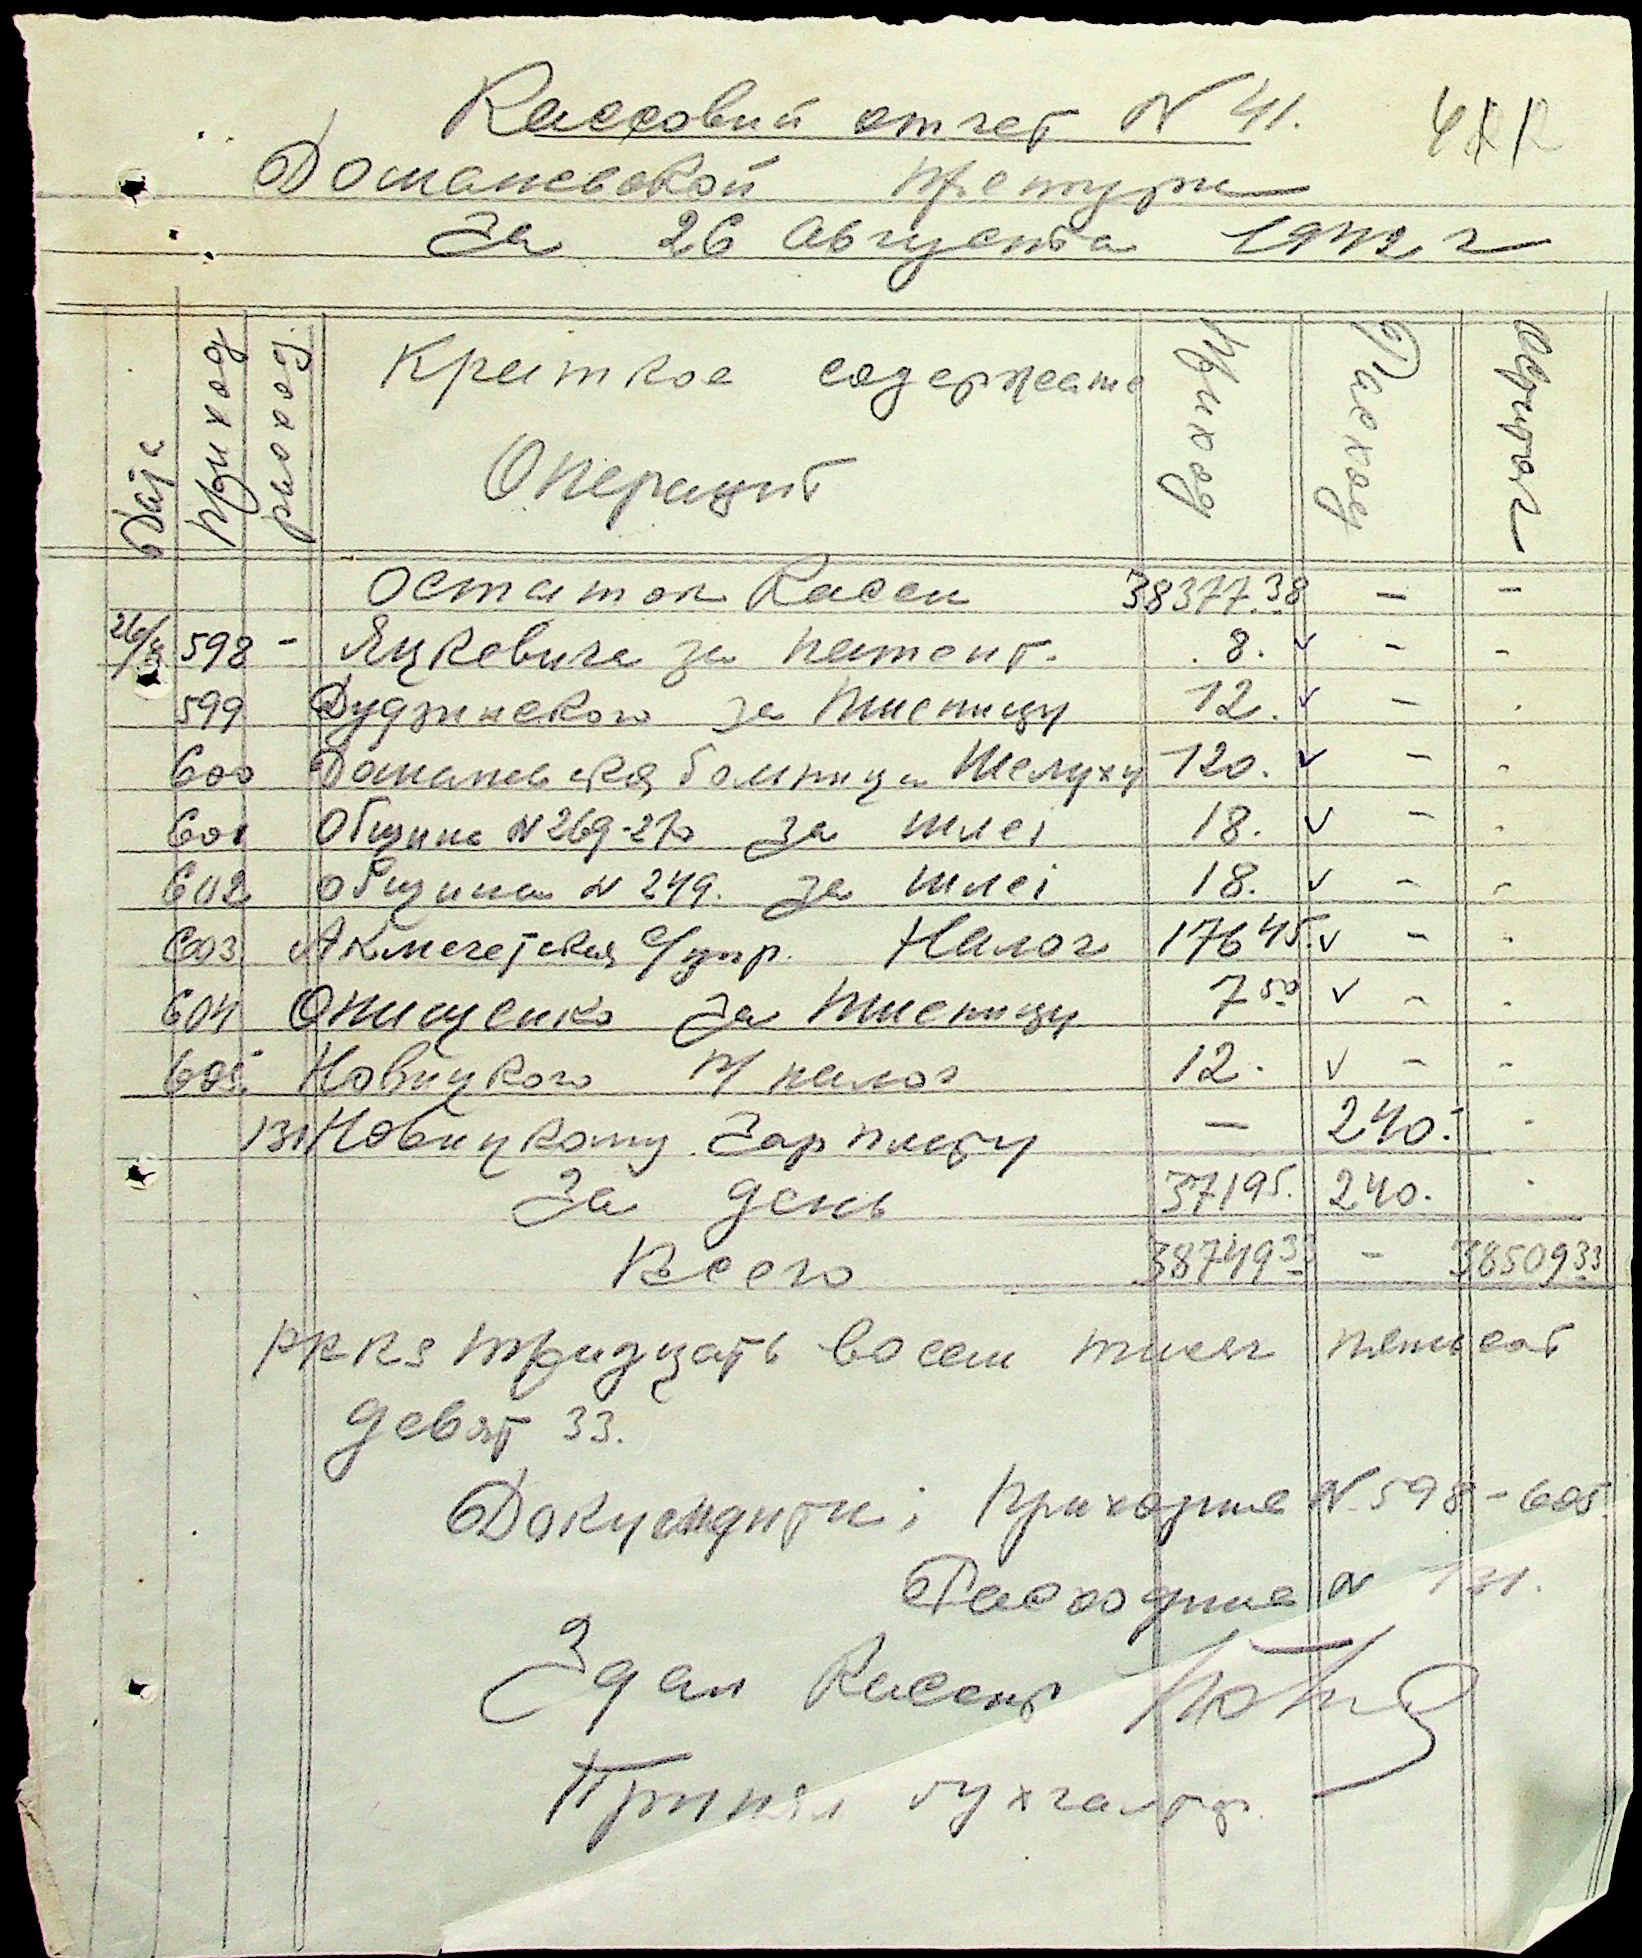 Кассовий отчет N 41.
Доманевской претури
За 26 Августа 1942 г
Дата приход расход Краткое содержание Операций Приход Расход Остаток
Остаток Касси 38377.38 - -
26/8 598 - Яцкевича за патент. 8. v - -
599 Дудзинского за пшеницу 12. v - .
600 Доманевская болница Шелуху 120. v - .
601 Общине N 269-270 за шлеі 18. v - .
602 община N 249. за шлеі 18. v - -
603 Акмечетская с/упр. Налог 176 45. v - .
604 Онищенко за пшеницу 7 50 v - .
605 Новицкого п/налог 12. v - .
131 Новицкому зарплату — 240.- .
За день 371 95. 240. .
Всего 38749 33 - 38509 33
РККS тридцать восем тисяч пятьсот
девят 33.
Документи; Приходние N. 598-605.
Расходние N 131.
Здал Кассир
Принял бухгалтер.